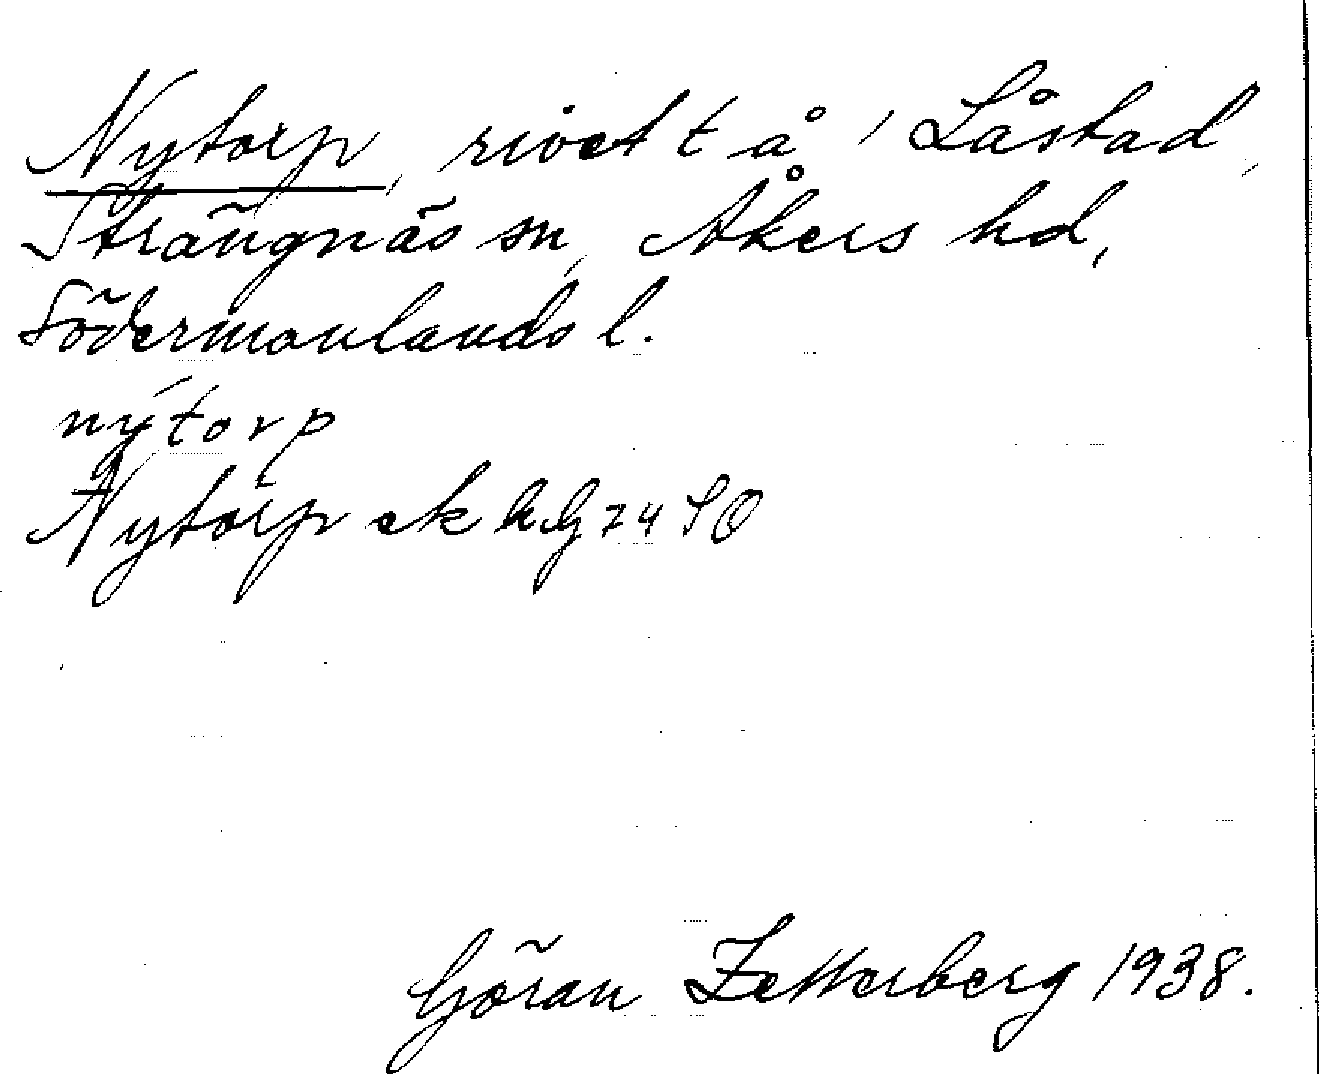 Nytorp, rivet t å 1 Låstad,
Strängnäs sn, Åkers hd,
Södermanlands l.
nýtorp
Nytorp ek bl 74 SO
Göran Zetterberg 1938.